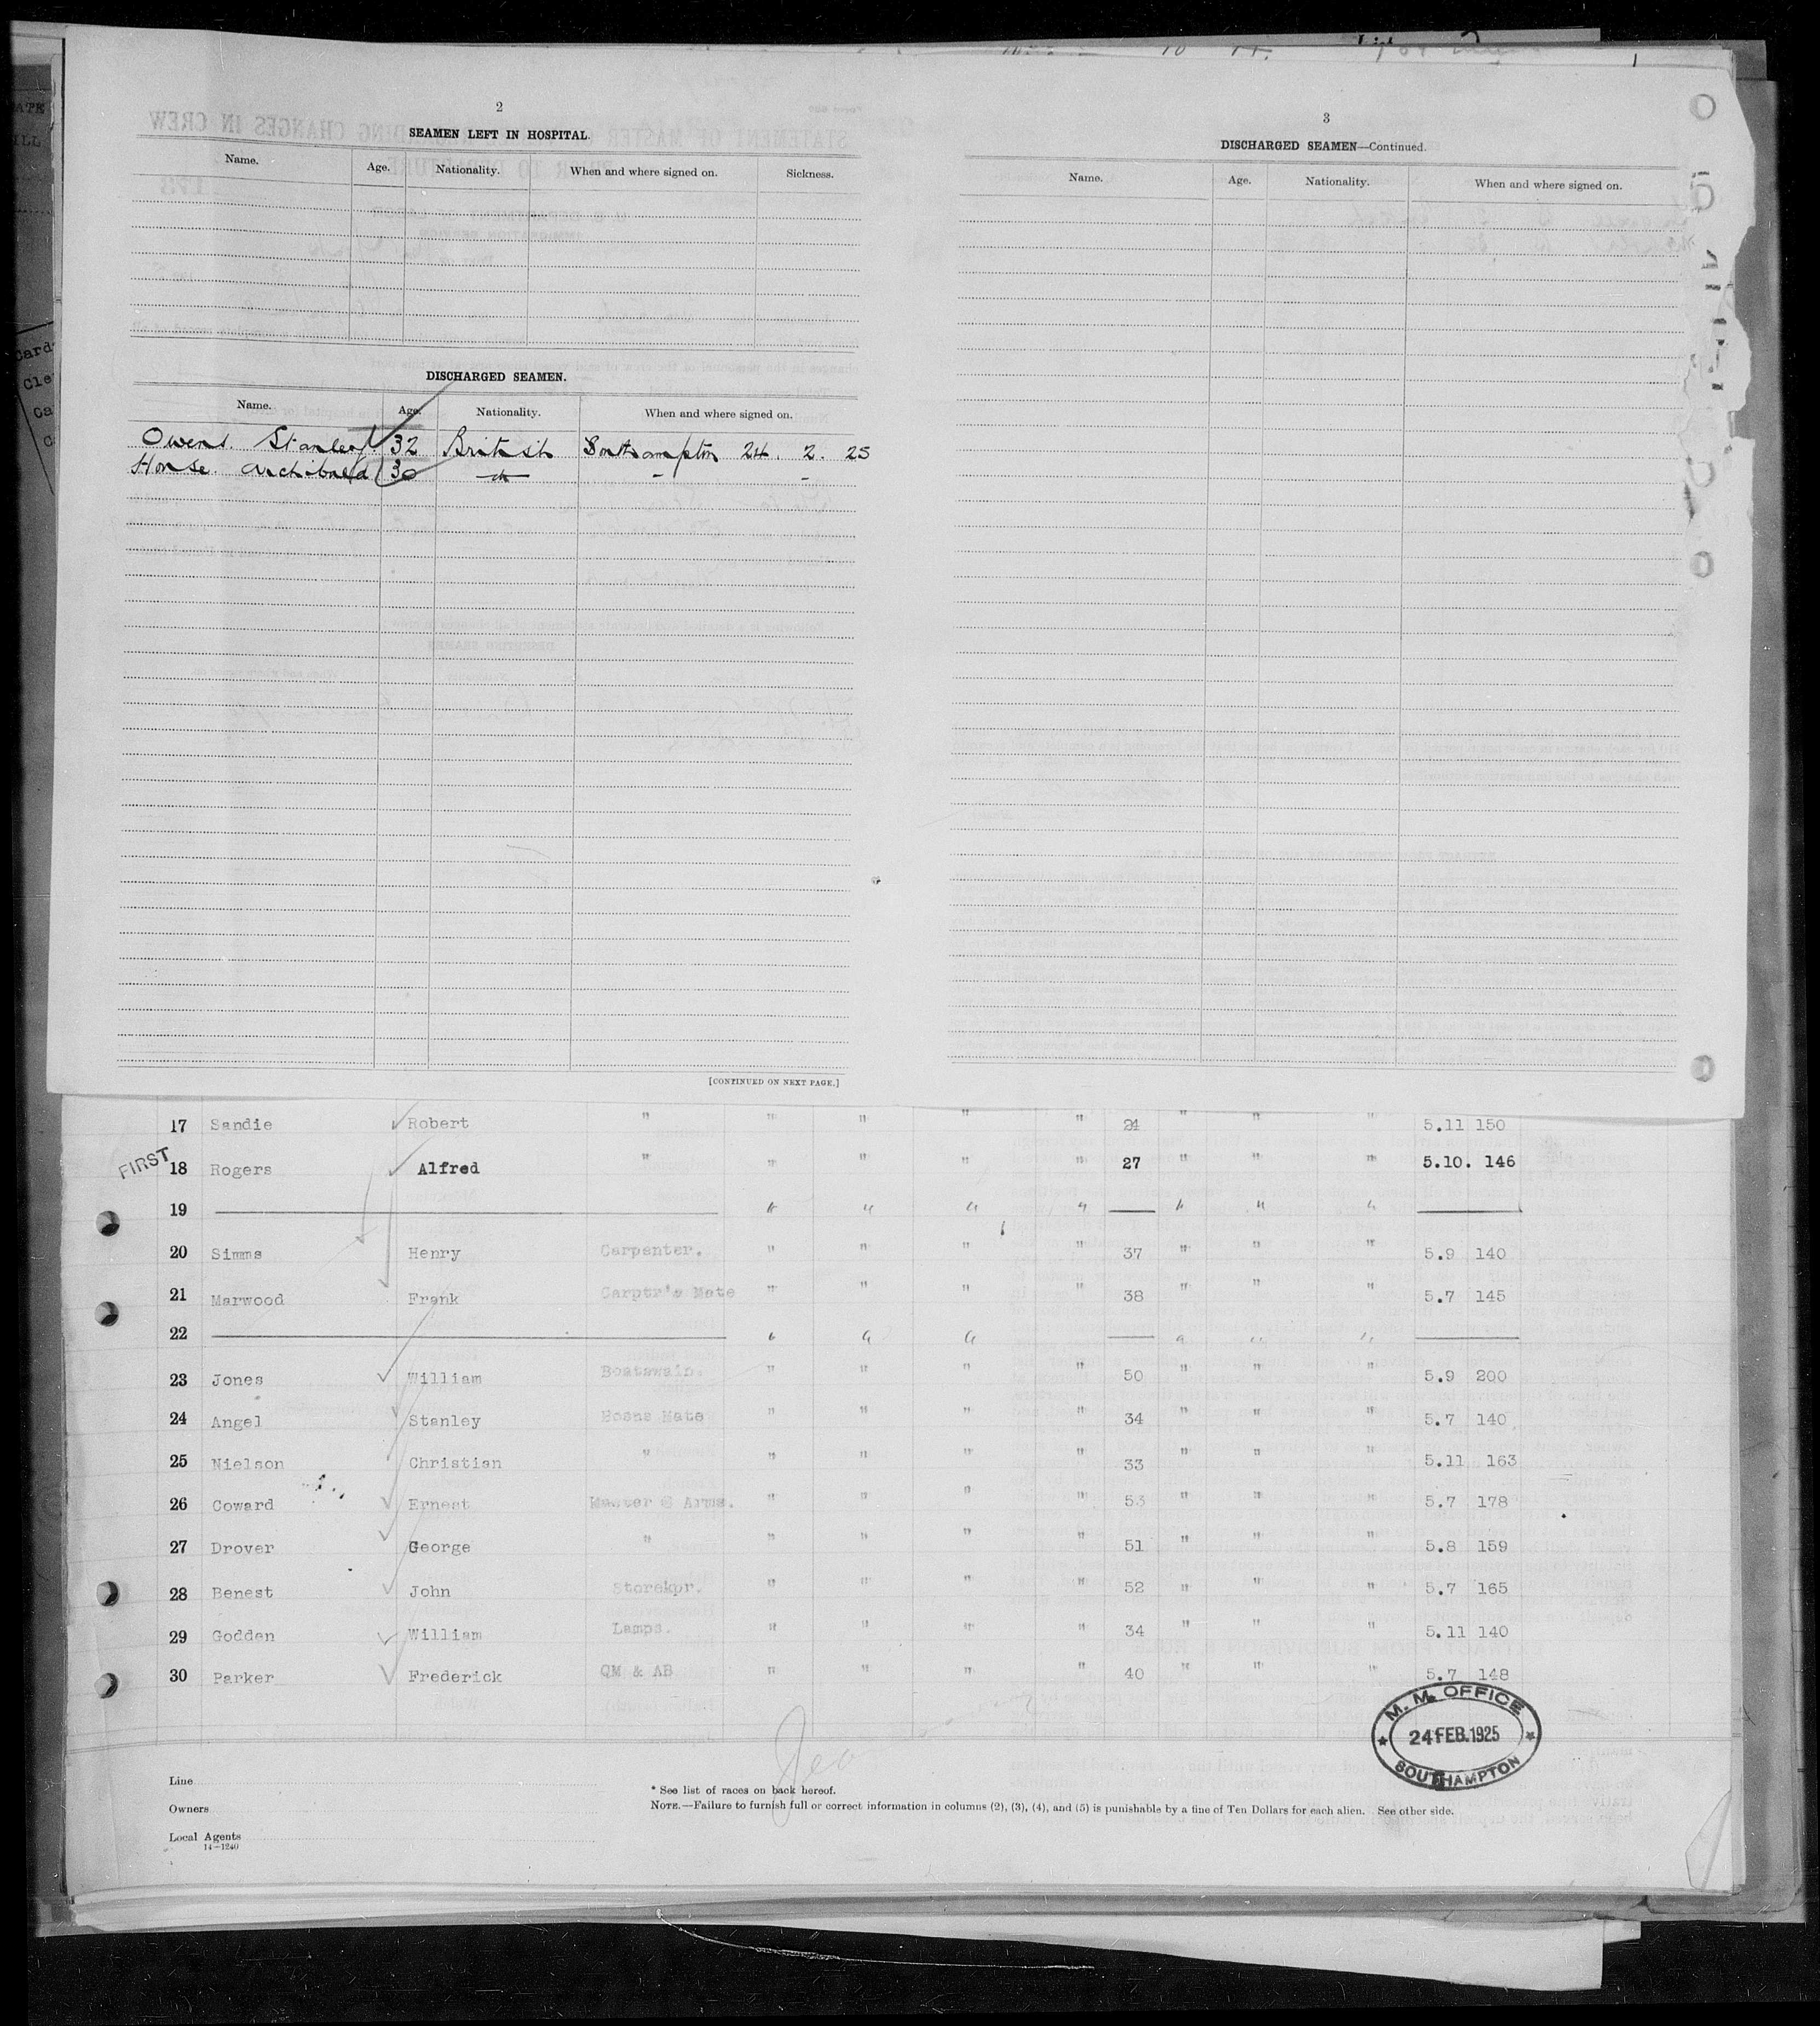 2
SEAMEN LEFT IN HOSPITAL.
Name. Age. Nationality. When and where signed on. Sickness.
DISCHARGED SEAMEN.
Name. Age. Nationality. When and where signed on.
Owens. Stanley. 32 British Southampton 24. 2. 25
House. Archibald 30 - do - - -
[CONTINUED ON NEXT PAGE.]
3
DISCHARGED SEAMEN—Continued.
Name. Age. Nationality. When and where signed on.
17 Sandie Robert " " " " " 24 " " " 5.11 150
FIRST
18 Rogers Alfred " " " " " 27 " " " 5.10. 146
19 " " " " " " "
20 Simms Henry Carpenter. " " " " 37 " " " 5.9 140
21 Marwood Frank Carptr's Mate " " " " 38 " " " 5.7 145
22 " " " " " "
23 Jones William Boatswain. " " " " 50 " " " 5.9 200
24 Angel Stanley Bosns Mate " " " " 34 " " " 5.7 140
25 Nielson Christian " " " " " 33 " " " 5.11 163
26 Coward Ernest Master @ Arms. " " " " 53 " " " 5.7 178
27 Drover George " " " " " 51 " " " 5.8 159
28 Benest John Storekpr. " " " " 52 " " " 5.7 165
29 Godden William Lamps. " " " " 34 " " " 5.11 140
30 Parker Frederick QM & AB " " " " 40 " " " 5.7 148
M. M. OFFICE
24 FEB. 1925
SOUTHAMPTON
Line
Owners
Local Agents
14—1240
* See list of races on back hereof.
NOTE.—Failure to furnish full or correct information in columns (2), (3), (4), and (5) is punishable by a fine of Ten Dollars for each alien. See other side.